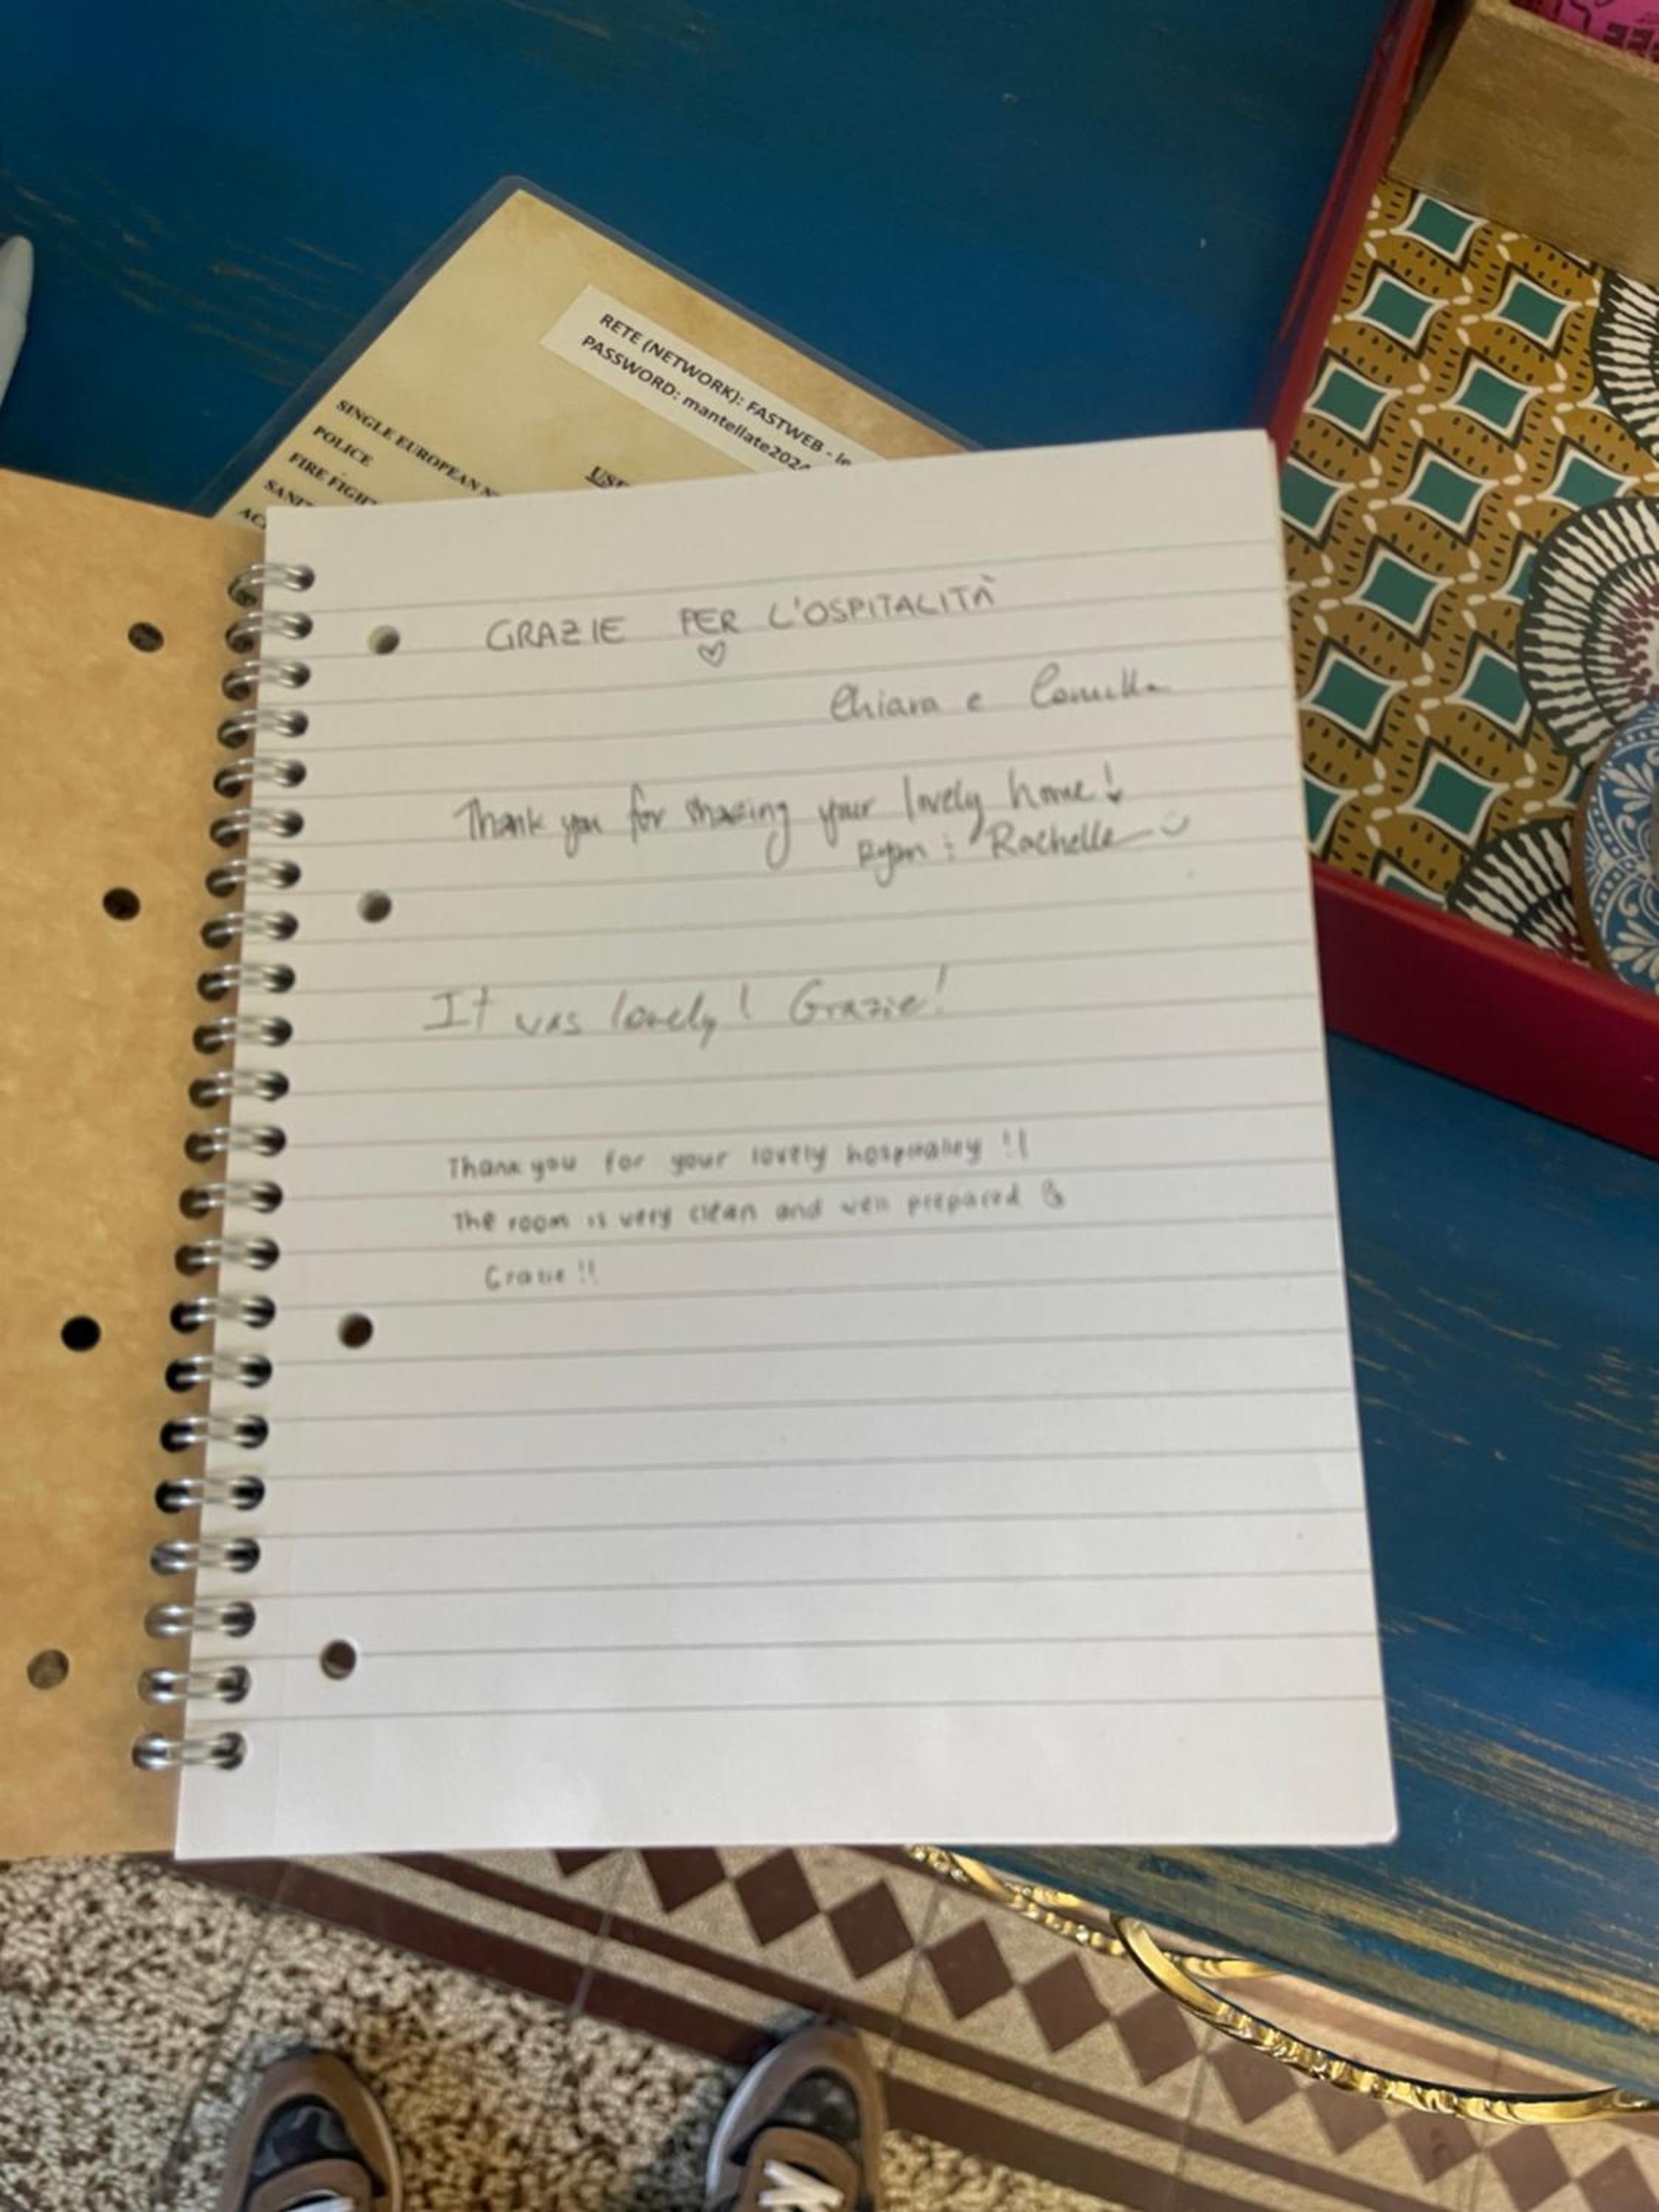 RETE (NETWORK): FASTWEB - le
PASSWORD: mantellate202
SINGLE EUROPEAN
POLICE
FIRE
GRAZIE PER L'OSPITALITÀ
♡
Chiara e Camilla
Thank you for sharing your lovely home!
Ryan & Rachelle
It was lovely! Grazie!
Thank you for your lovely hospitality !!
The room is very clean and well prepared
Grazie !!